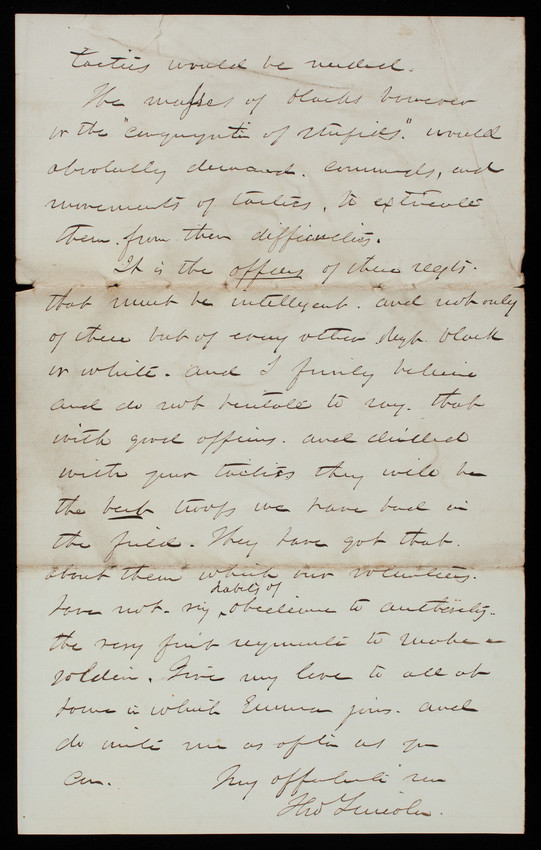 tactics would be needed.
The masses of blacks however
or the "congregate of stupids." would
absolutely demand. commands, and
movements of tactics, to extricate
them from their difficulties.
It is the officers of these regts.
that must be intelligent. and not only
of these but of every other regt. black
or white. and I firmly believe
and do not hesitate to say. that
with good officers. and drilled
with your tactics they will be
the best troops we have had in
the field. They have got that.
about them which our volunteers.
habits of
have not. viz, obedience to authority.
the very first requisite to make a
soldier. Give my love to all at
home in which Emma joins. and
do write me as often as you
can. My affectionate son
Thos Lincoln.